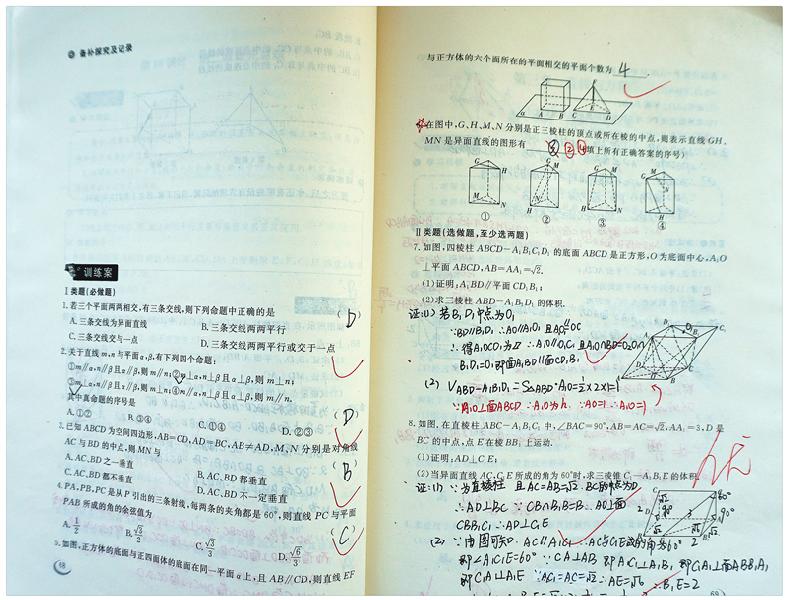 备补探究及记录
训练案
Ⅰ类题(必做题)
1.若三个平面两两相交,有三条交线,则下列命题中正确的是 (D)
A.三条交线为异面直线 B.三条交线两两平行
C.三条交线交与一点 D.三条交线两两平行或交于一点
2.关于直线m,n与平面α,β,有下列四个命题:
①m//α,n//β且α//β,则m//n;②m⊥α,n⊥β且α⊥β,则m⊥n;
③m⊥α,n//β且α//β,则m⊥n;④m//α,n⊥β且α⊥β,则m//n.
其中真命题的序号是 (D)
A.①② B.③④ C.①④ D.②③
3.已知ABCD为空间四边形,AB=CD,AD=BC,AB≠AD,M、N分别是对角线
AC与BD的中点,则MN与 (B)
A.AC、BD之一垂直 B.AC、BD都垂直
C.AC、BD都不垂直 D.AC、BD不一定垂直
4.PA、PB、PC是从P引出的三条射线,每两条的夹角都是60°,则直线PC与平面
PAB所成的角的余弦值为 (C)
A.1/2 B.√3/2 C.√3/3 D.√6/3
5.如图,正方体的底面与正四面体的底面在同一平面α上,且AB//CD,则直线EF
68
与正方体的六个面所在的平面相交的平面个数为 4
α A B C D E F
在图中,G、H、M、N分别是正三棱柱的顶点或所在棱的中点,则表示直线GH、
MN是异面直线的图形有 ②④(填上所有正确答案的序号)
① ② ③ ④
Ⅱ类题(选做题,至少选两题)
7.如图,四棱柱ABCD—A₁B₁C₁D₁的底面ABCD是正方形,O为底面中心,A₁O
⊥平面ABCD,AB=AA₁=√2.
(1)证明:A₁BD//平面CD₁B₁;
(2)求三棱柱ABD—A₁B₁D₁的体积.
证:(1)若B₁D₁中点为O₁
∵BD//B₁D₁ ∴AO//A₁O₁ 且
(2) V ABD-A₁B₁D₁=S△ABD·A₁O=½×2×1=1
∵A₁O⊥面ABCD ∴A₁O为h ∵AO=1 ∴A₁O=1
8.如图,在直棱柱ABC—A₁B₁C₁中,∠BAC=90°,AB=AC=√2,AA₁=3,D是
BC的中点,点E在棱BB₁上运动.
(1)证明:AD⊥C₁E;
(2)当异面直线AC,C₁E所成的角为60°时,求三棱锥C₁—A₁B₁E的体积.
证:(1)∵为直棱柱 且AC=AB=√2 BC的中点为D
∴AD⊥BC
CBB₁C₁ ∴AD⊥C₁E
(2) ∵由图可知 AC//A₁C₁ ∴AC与C₁E成的角为60°
即∠A₁C₁E=60° ∵CA⊥AB 即A₁C₁⊥A₁B₁ 即C₁A₁⊥面ABB₁A₁
即C₁A₁⊥A₁E ∵A₁C₁=AC=√2 ∴A₁E=√6 ∴B₁E=2